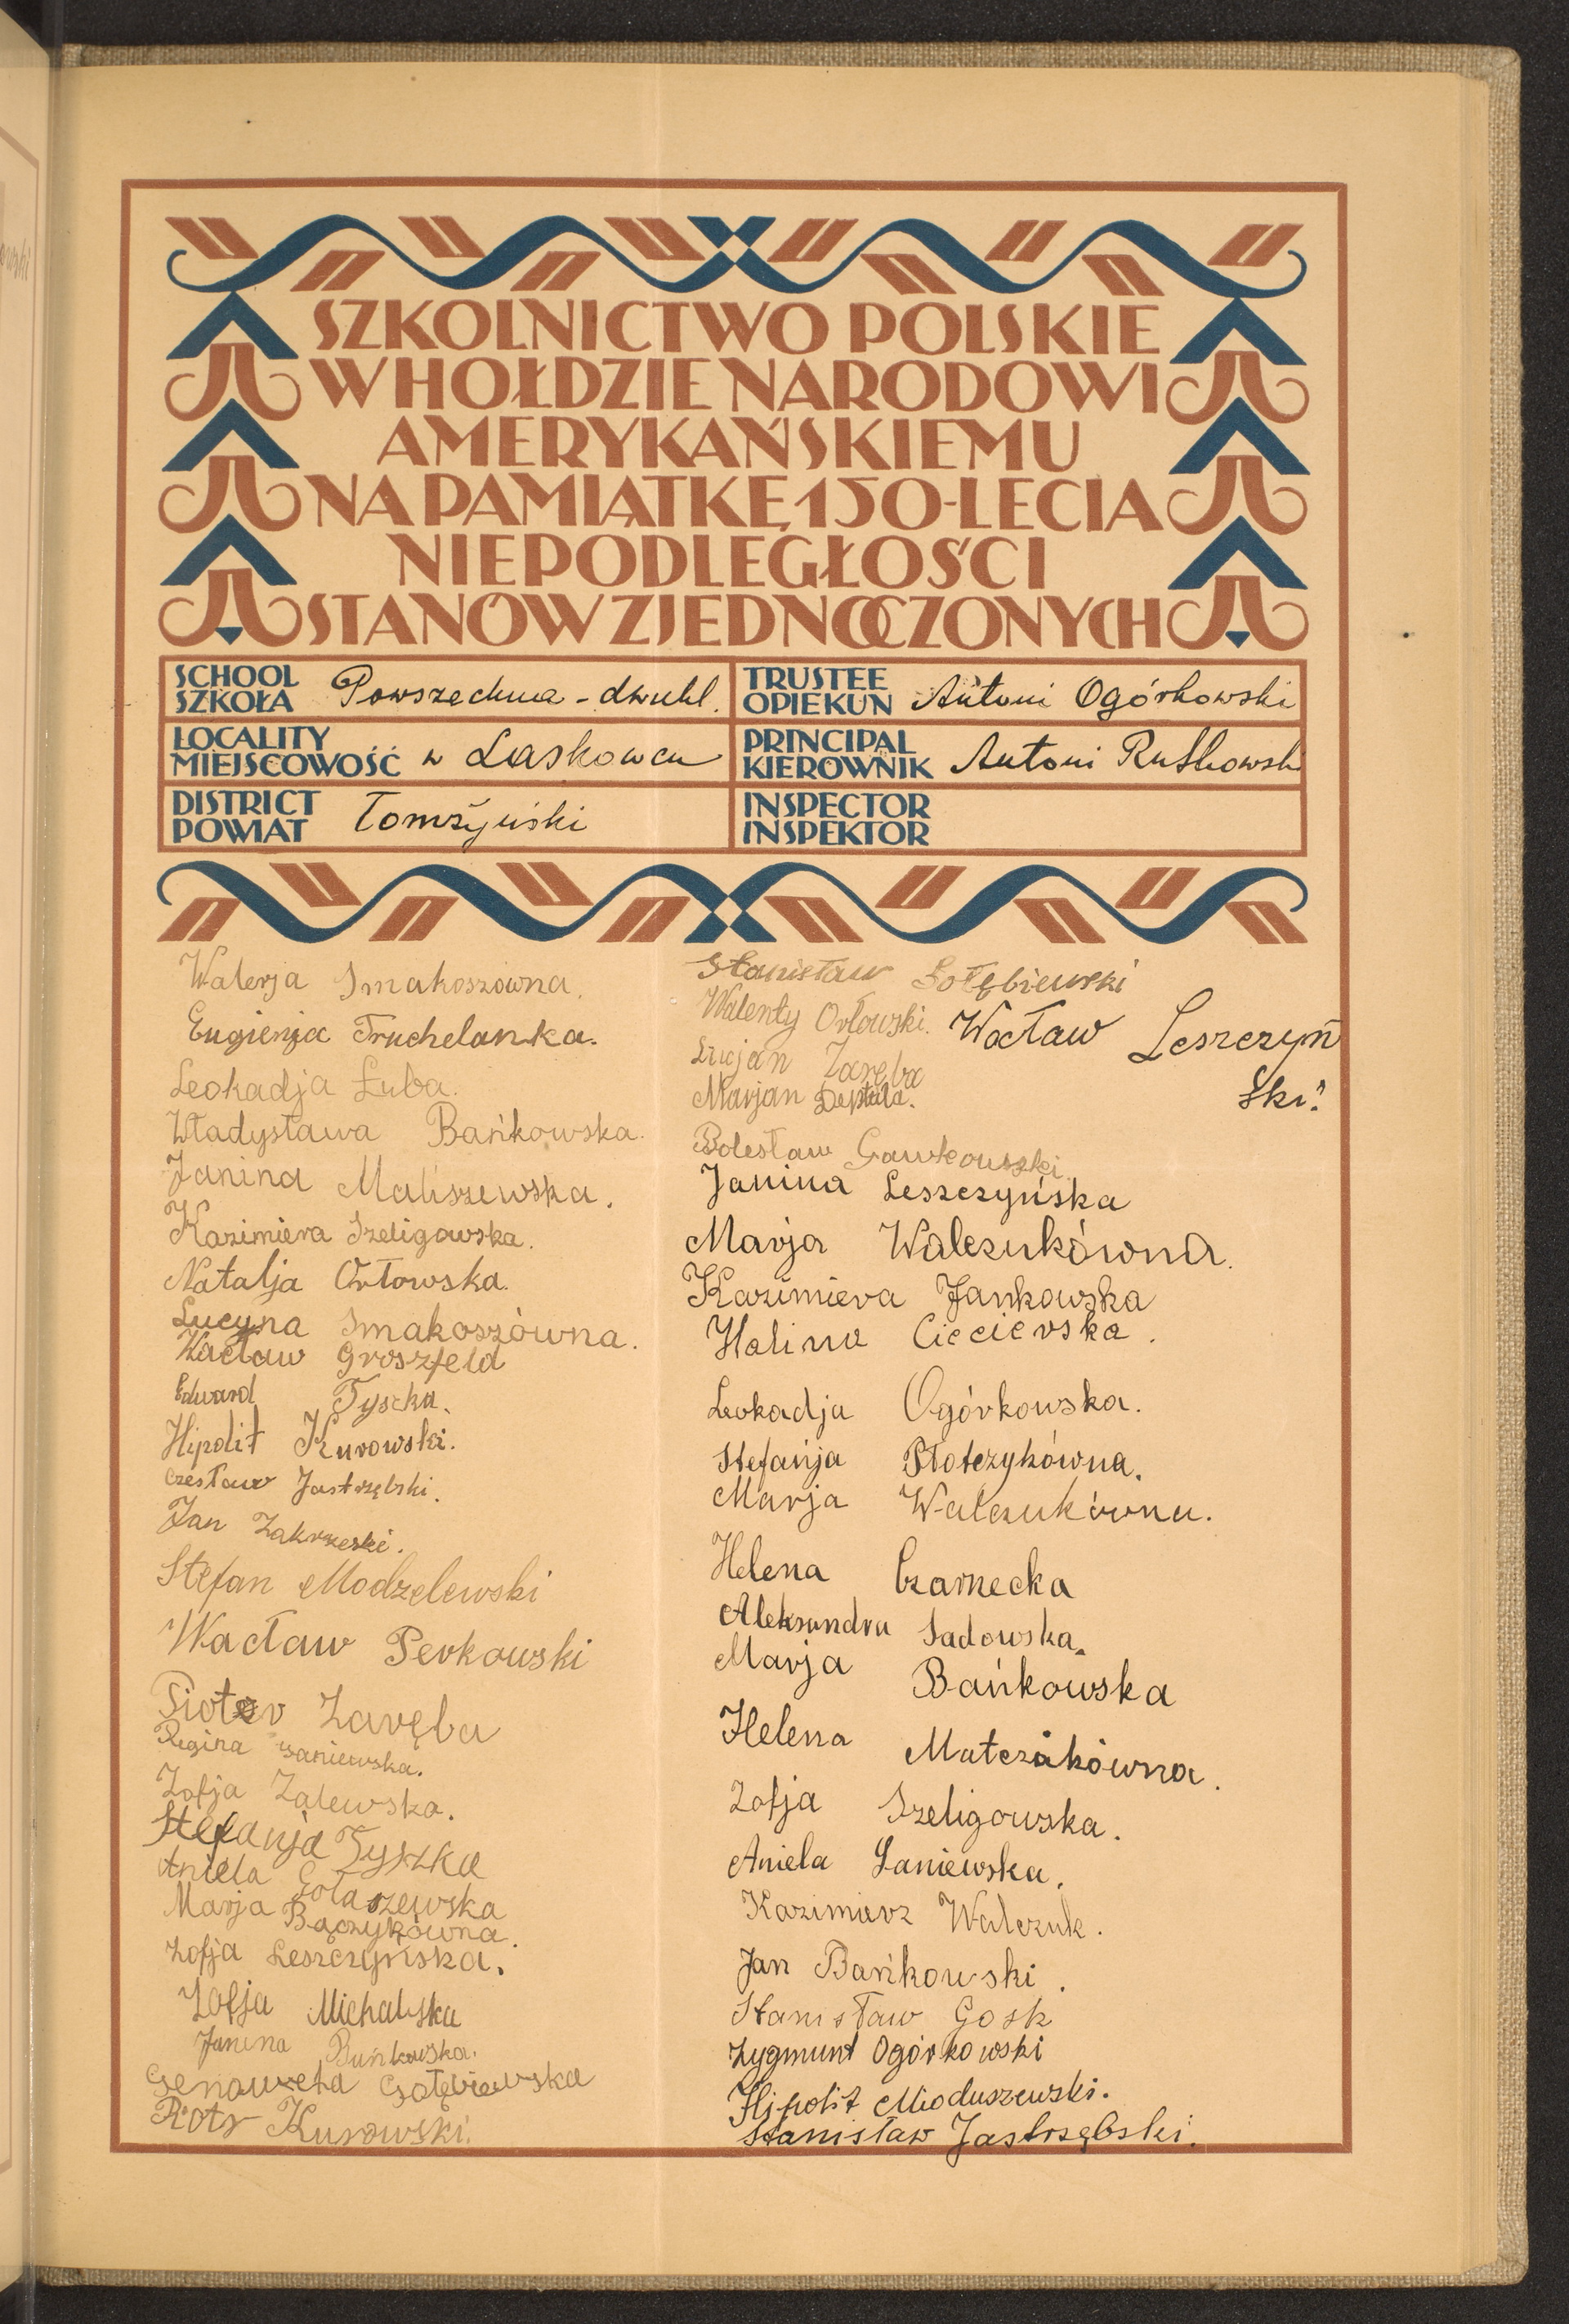 SZKOLNICTWO POLSKIE
W HOŁDZIE NARODOWI
AMERYKAŃSKIEMU
NA PAMIĄTKĘ 150-LECIA
NIEPODLEGŁOŚCI
STANÓW ZJEDNOCZONYCH
SCHOOL
SZKOŁA Powszechna - dwukl.
TRUSTEE
OPIEKUN Antoni Ogórkowski
LOCALITY
MIEJSCOWOŚĆ w Laskowcu
PRINCIPAL
KIEROWNIK Antoni Rutkowski
DISTRICT
POWIAT Łomżyński
INSPECTOR
INSPEKTOR
Walerja Smakoszówna.
Eugienja Truchelanka.
Leokadja Łuba.
Władysława Bańkowska.
Janina Maliszewska.
Kazimiera Szeligowska.
Natalja Orłowska.
Lucyna Smakoszówna.
Wacław Groszfeld
Edward Tyszka.
Hipolit Kurowski.
Czesław Jastrzębski.
Jan Zakrzeski.
Stefan Modzelewski
Wacław Perkowski
Piotr Zaręba
Regina Saniewska.
Zofja Zalewska.
Stefanja Tyszka
Aniela Gołaszewska
Marja Bączykówna.
Zofja Leszczyńska.
Zofja Michalska
Janina Bańkowska.
Genowefa Gołębiewska
Piotr Kurowski.
Stanisław Gołębiewski
Walenty Orłowski.
Wacław Leszczyń
ski.
Lucjan Zaręba
Marjan Deptuła.
Bolesław Gawkowski
Janina Leszczyńska
Marja Walczukówna.
Kazimiera Jankowska
Halina Ciecierska.
Leokadja Ogórkowska.
Stefanja Płotczykówna.
Marja Walczukówna.
Helena Czarnecka
Aleksandra Sadowska.
Marja Bańkowska
Helena Matczakówna.
Zofja Szeligowska.
Aniela Saniewska.
Kazimierz Walczuk.
Jan Bańkowski.
Stanisław Gosk
Zygmunt Ogórkowski
Hipolit Mioduszewski.
Stanisław Jastrzębski.